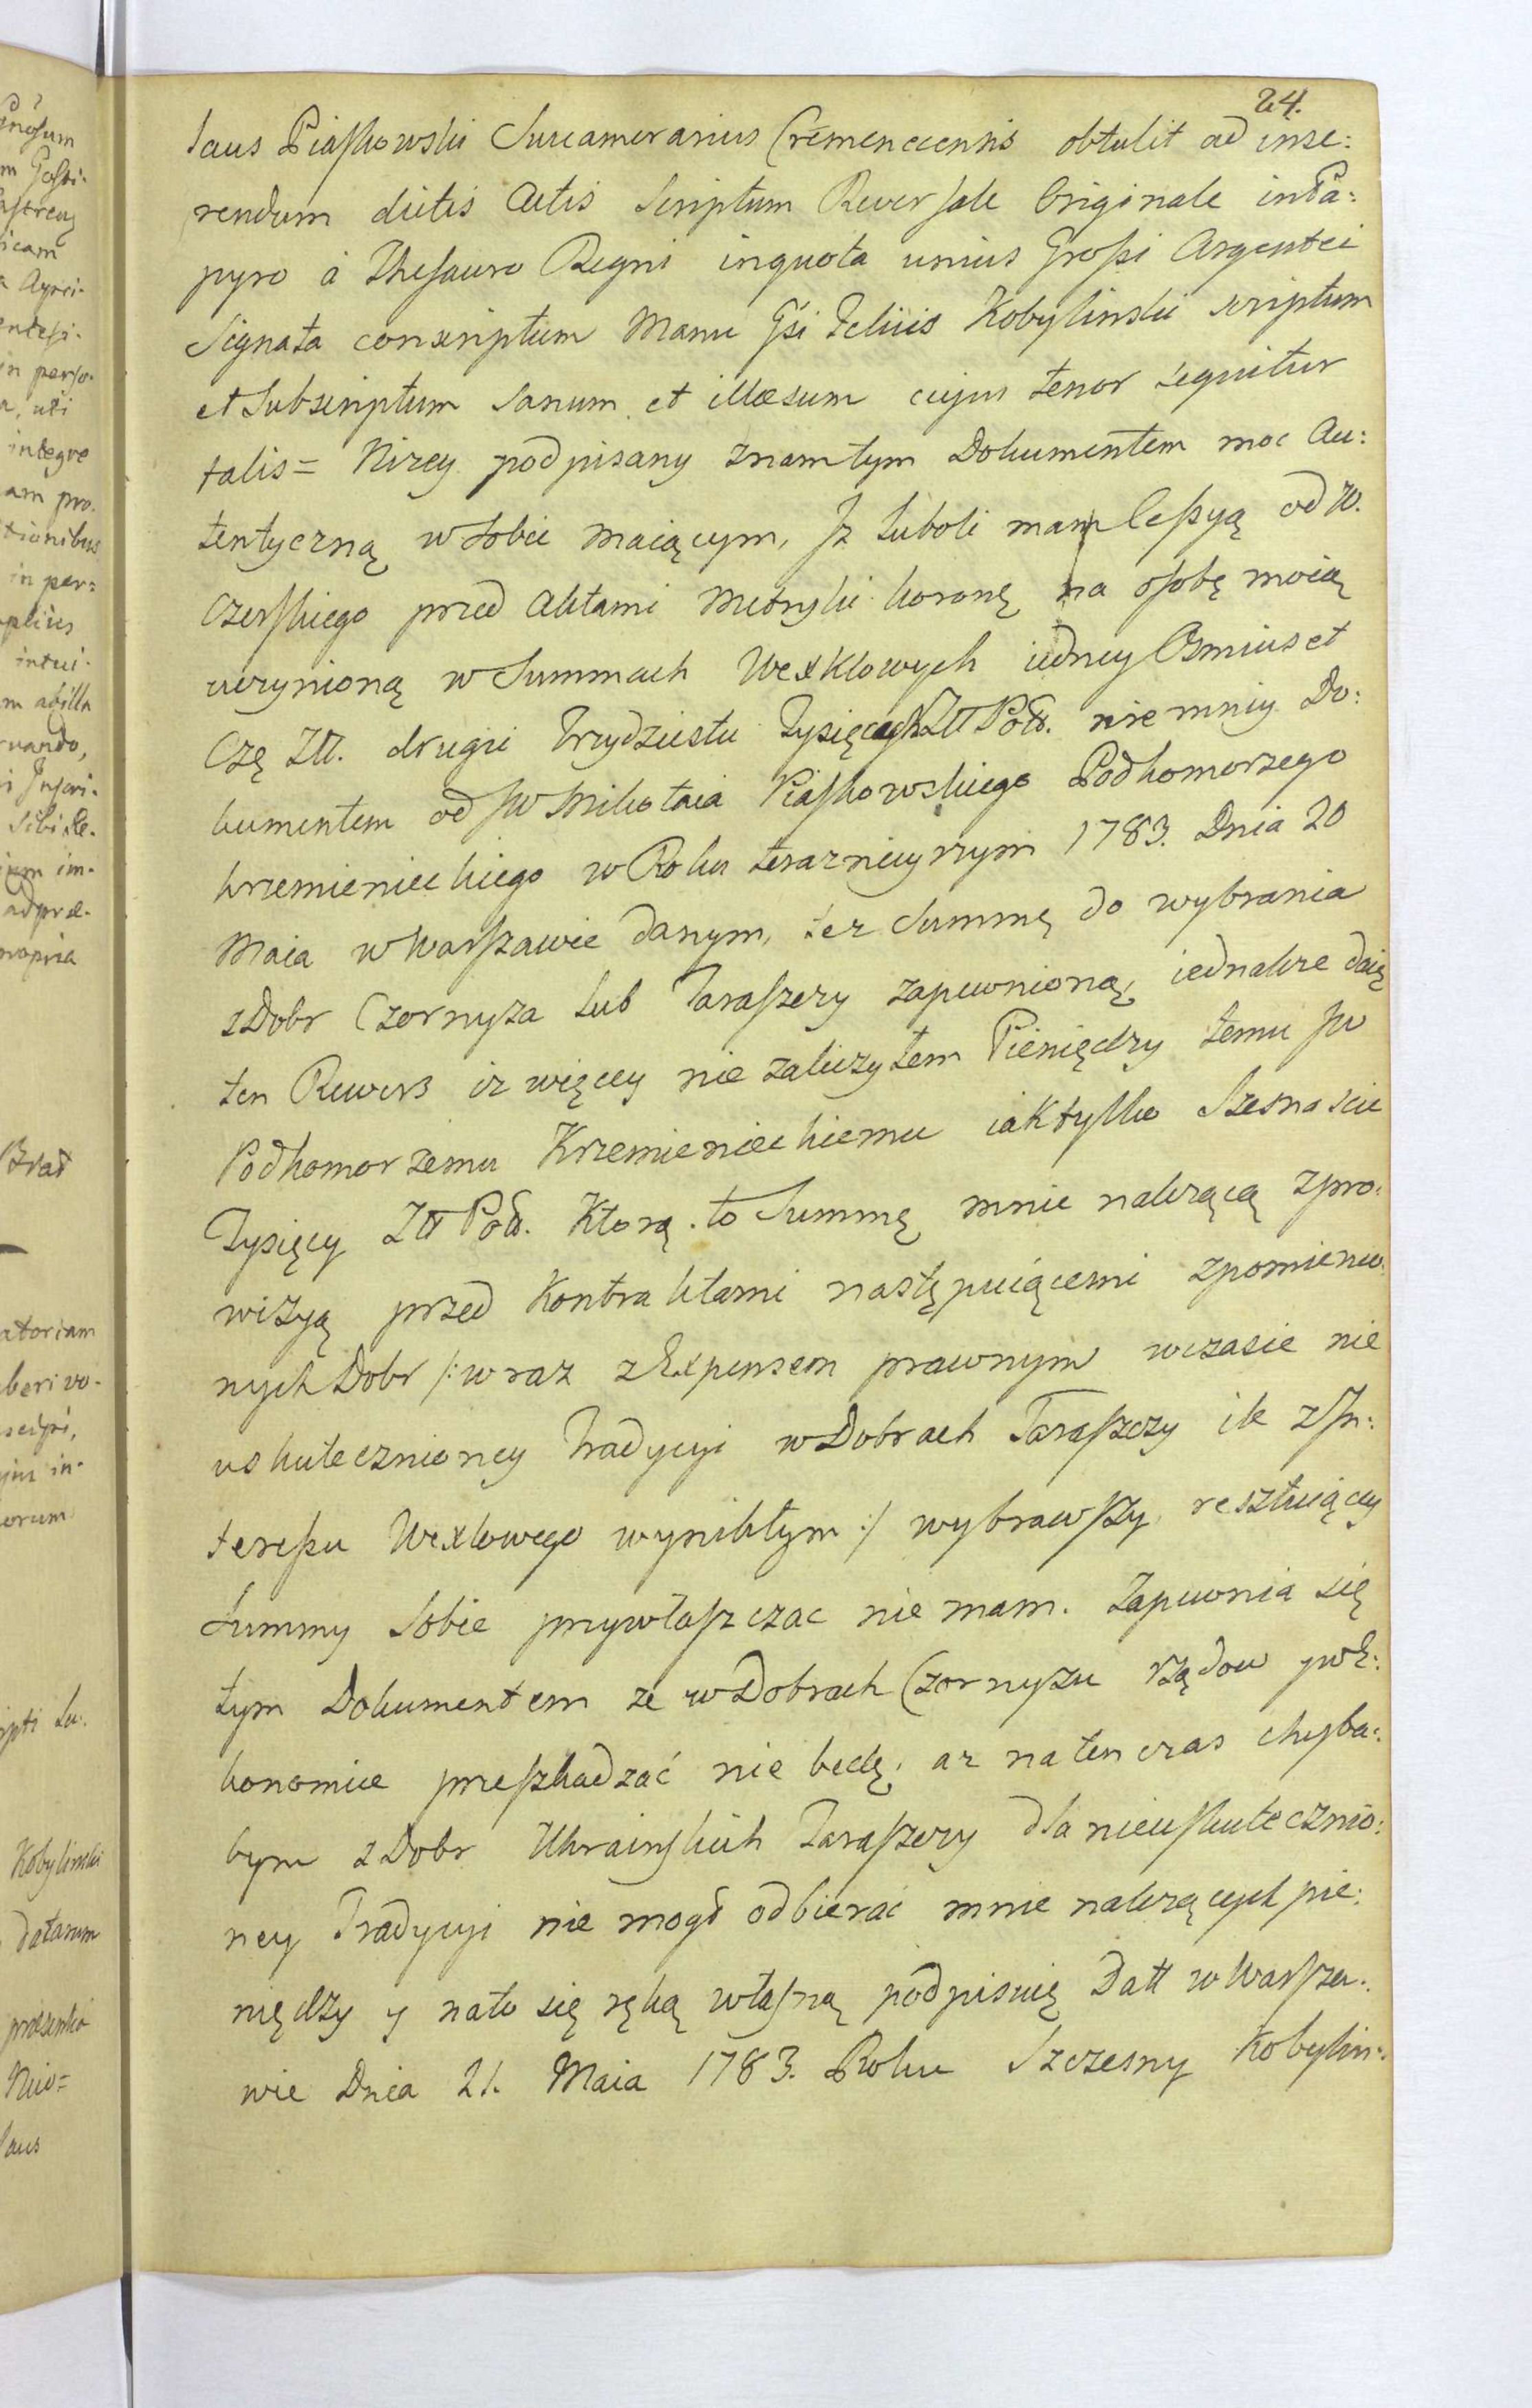 24.
laus Piaskowski Succamerarius Cremenecensis obtulit ad inse:
rendum dictis Actis Scriptum Reversale Originale in Pa:
pyro à Thesauro Regni in quota unius Grossi Argentei
Signata conscriptum Manu Gsi Felicis Kobylinski scriptum
et Subscriptum Sanum et illæsum cujus tenor sequitur
talis = Nizey podpisany znam tym Dokumentem moc Au:
tentyczną w Sobie maiącym, Iz luboli mam Cessyą od W.
Czerskiego przed Aktami Metryki koroney na osobę moią
uczynioną w Summach Wexlowych iedney Osmiuset
Czę Złł. drugiey Trzydziestu Tysięcy Złł Pols. niemniey Do:
kumentem od JW Mikołaia Piaskowskiego Podkomorzego
krzemienieckiego w Roku terazniejszym 1783. Dnia 20
Maia w Warszawie danym, tez Summę do wybrania
z Dobr Czornyza lub Taraszczy zapewnioną, iednakze daię
ten Rewers iz więcey nie zaliczyłem Pieniędzy temu JW
Podkomorzemu Krzemienieckiemu iak tylko Szesnascie
Tysięcy Złł Pols. Ktorą to Summę mnie nalezącą z pro:
wizyą przed Kontraktami następuiącemi z pomienio:
nych Dobr /: wraz z Expensem prawnym w czasie nie
uskutecznioney Tradycyi w Dobrach Taraszczy ile z In:
teressu Wexlowego wynikłym :/ wybrawszy, resztuiącey
Summy Sobie przywłaszczac nie mam. Zapewnia się
tym Dokumentem ze w Dobrach Czornyzu rządow y w E:
konomice przeszkadzać nie będę, az na ten czas chyba:
bym z Dobr Ukrainskich Taraszczy dla nieuskutecznio:
ney Tradycyi nie mogł odbierać mnie nalezących pie:
niędzy y na to się ręką własną podpisuię Datt w Warsza:
wie Dnia 21. Maia 1783. Roku Szczesny Kobylin: